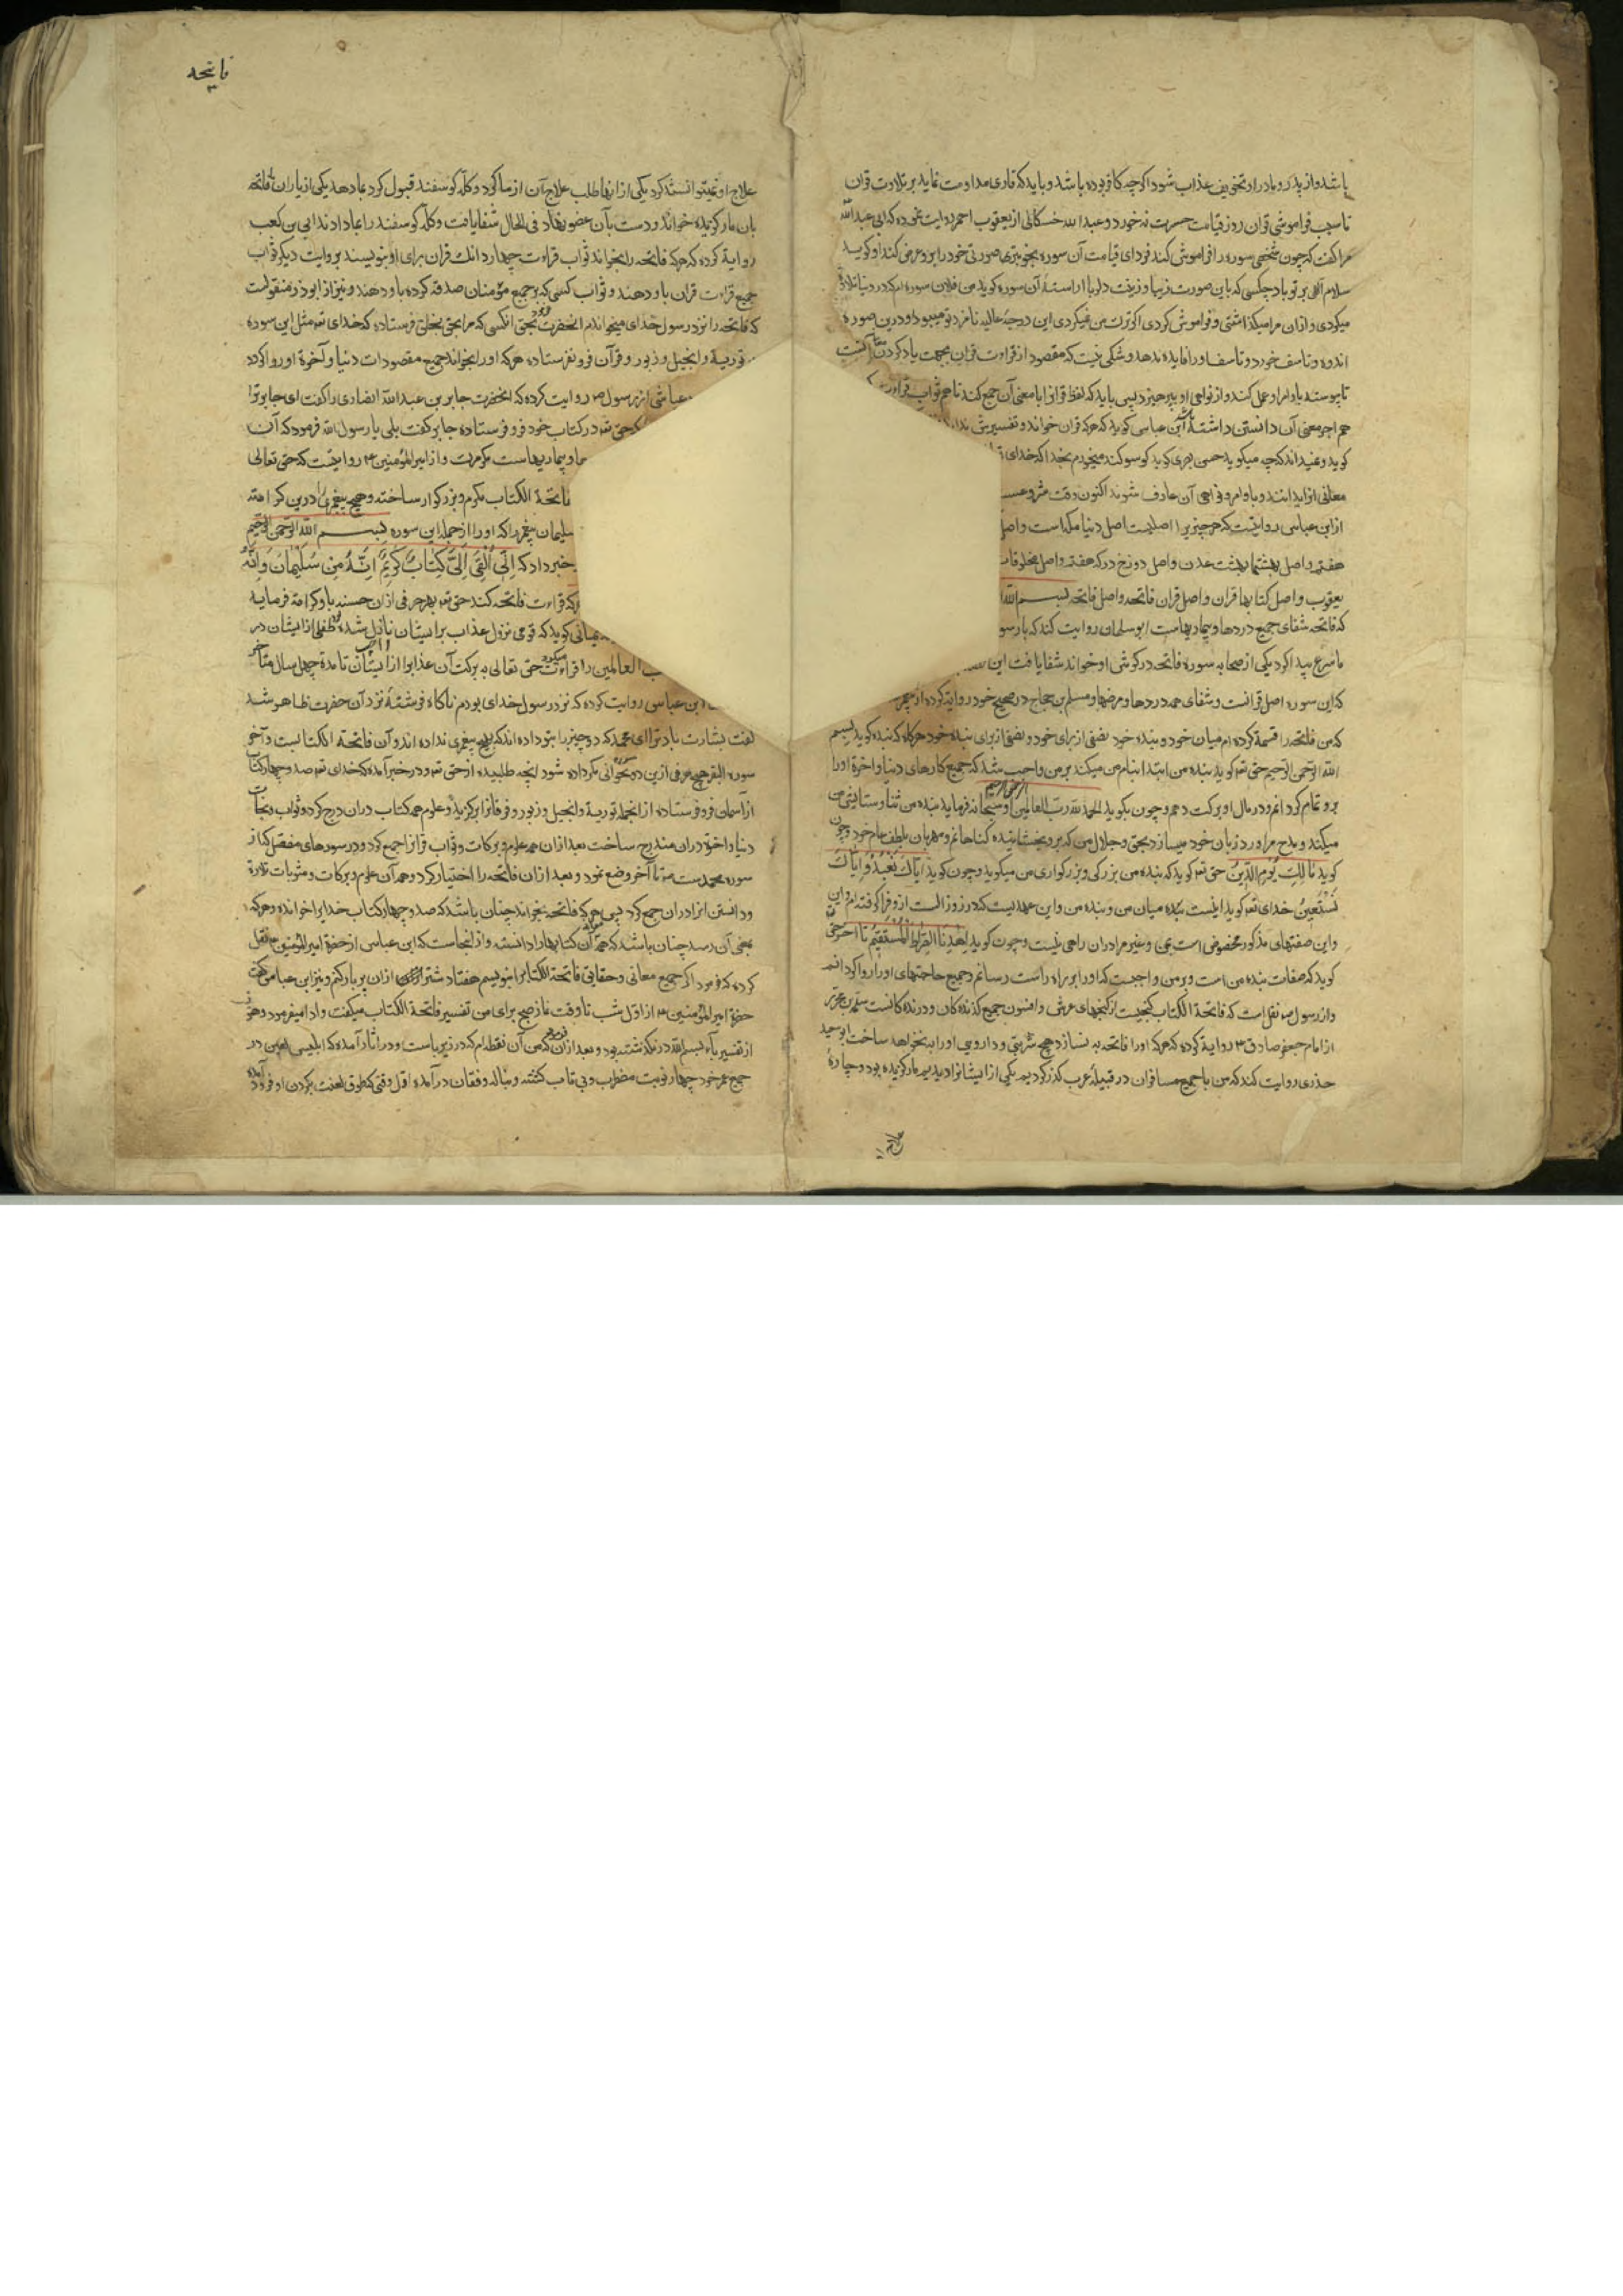 باشد و از پدر و مادر او تخفیف عذاب شود اکرچه کافر بوده باشد و باید که قاری مداومت نماید بر تلاوت قران
تا سبب فراموشی قران روز قیامت حسرت نه خورد و عبد الله از یعقوب احمر روایت نموده که ابی عبد الله
مرا کفت که چون شخصی سوره را فراموش کند فردای قیامت آن سوره بخوبترین صورتی خود را برو عرض کند او کوید
سلام الهی بر تو باد چکسی که باین صورت زیبا و زینت دلربا اراستهٔ آن سوره کوید من فلان سوره ام که در دنیا تلاوة
میکردی و ازان مرا میکذاشتی و فراموش کردی اکر ترک من نمیکردی این درجهٔ عالیه نامزد تو میبود و درین صوره
اندوه و تاسف خورد و تاسف او را فایده ندهد و شکی نیست که مقصود از قراءت قران بجهت یاد کردن آنست
تا پیوسته باوامر او عمل کند و از نواهی او بپرهیزد پس باید که لفظ قرانرا با معنی آن جمع کند تا هم ثواب قراءت
هم اجر معنی آن دانستن داشته ابن عباس کوید که هرکه قران خواند و تفسیرش نداند
کوید و نمیداند که چه میکوید حسن بصری کوید که سوکند میخورم بخدا که خدای
معانی انرا بدانند و باوامر و نواهی آن عارف شوند اکنون وقت شروعست
از ابن عباس روایتست که هر چیز را اصلیست اصل دنیا مکه است و اصل
هفتم و اصل بهشتها بهشت عدن و اصل دوزخ درکه هفتم و اصل مخلوقات
یعقوب و اصل کتابها قران و اصل قران فاتحه و اصل فاتحه بسم الله
که فاتحه شفای جمیع دردها و بیماریهاست ابو سلمان روایت کند که با رسو
ما صرع پیدا کرد یکی از صحابه سوره فاتحه در کوش او خواند شفا یافت این
که این سوره اصل قرانست و شفای همه دردها و مرضها و مسلم بن حجاج در صحیح خود روایة کرده از
که من فاتحه را قسمة کرده ام میان خود و بنده خود نصفی از برای خود و نصفی از برای بنده خود هرکاه که بنده کوید بسم
الله الرحمن الرحیم حق تع کوید بنده من ابتدا بنام من میکند بر من واجب شد که جمیع کارهای دنیا و اخرة او را
برو تمام کردانم و در مال او برکت دهم و چون بکوید الحمد لله رب العالمین الرحمن الرحیم او سبحانه فرماید بنده من ثنا و ستایش من
میکند و مدح مرا ورد زبان خود میسازد بعزت و جلال من که برو بخشاینده کناهانم و مهربان بلطف عام خود و چون
کوید مالك یوم الدین حق تع کوید که بنده من بزرکی و بزرکواری من میکوید و چون کوید ایاك نعبد و ایاك
نستعین خدای تع کوید اینست عهد میان من و بنده من و این عهدیست که در روز الست ازو فرا کرفته ام و این
و این صفتهای مذکور مخصوص است بمن و غیر مرا دران راهی نیست و چون کوید اهدنا الصراط المستقیم تا اخر حق
کوید که صفات بنده من است و بر من واجبست که او را براه راست رسانم و جمیع حاجتهای او را روا کردانم
و از رسول نقل است که فاتحة الکتاب کنجیست از کنجهای عرش و افسون جمیع کزنده کان و درنده کانست
از امام جعفر صادق روایة کرده که هرکه او را فاتحه به نسازد هیچ شربتی و داروی او را به نخواهد ساخت ابو سعید
حذری روایت کند که من با جمیع مسافران در قبیلهٔ عرب کذر کردیم یکی از ایشانرا دیدیم مار کزیده بود و چارهٔ
علاج
فاتحه
علاج او نمیتوانستند کرد یکی ازانها طلب علاج آن از ما کرد و کلهٔ کوسفند قبول کرد بما دهد یکی از یاران ما فاتحه
بان مار کزیده خواند و دست بآن عضو نهاد فی الحال شفا یافت و کلهٔ کوسفند را بما دادند ابی بن کعب
روایة کرده که هرکه فاتحه را بخواند ثواب قراءت چهار دانك قران برای او بنویسند بروایت دیکر ثواب
جمیع قراءت قران باو دهند و ثواب کسی که بر جمیع مؤمنان صدقه کرده باو دهند و نیز از ابوذر منقولست
که فاتحه را نزد رسول خدای میخواندم انحضرت فرمود بحق انکسی که مرا بحق بخلق فرستاده که خدای تع مثل این سوره
توریة و انجیل و زبور و قرآن فرو نفرستاده هرکه او را بخواند جمیع مقصودات دنیا و آخرة او روا کردد
عباشی از رسول روایت کرده که انحضرت جابر بن عبد الله انصاری را کفت ای جابر ترا
که حق تع در کتاب خود فرو فرستاده جابر کفت بلی یا رسول الله فرمود که آن
و بیماریهاست مکر مرك و از امیر المؤمنین روایتست که حق تعالی
فاتحة الکتاب مکرم و بزرکوار ساخته و هیچ پیغمبری را درین کرامة
سلیمان پیغمبر را که او را از جمله این سوره بسم الله الرحمن الرحیم
خبر داد که انی القی الی کتاب کریم انه من سلیمان و انه
هرکه قراءت فاتحه کند حق تع بهر حرفی ازان حسنه باو کرامة فرماید
یمانی کوید که قومی نزول عذاب بر ایشان نازل شده طفلی از ایشان در
ب العالمین را قراءت میکرد حق تعالی به برکت آن عذاب را از ایشان تا مدة چهل سال متاخر
ابن عباس روایت کرده که نزد رسول خدای بودم ناکاه فرشتهٔ نزد آن حضرت ظاهر شد
کفت بشارت باد ترا ای محمد که دو چیز را بتو داده اند که هیچ پیغمبری نداده اند و آن فاتحة الکتابست و آخر
سوره البقر هیچ حرفی ازین دو نخوانی مکر داده شود انچه طلبیده از حق تع و در خبر آمده که خدای تع صد و چهار کتاب
از آسمان فرو فرستاده ازانجمله توریة و انجیل و زبور و فرقانرا برکزید و علوم همه کتاب دران درج کرد و ثواب و نجات
دنیا و اخرة دران مندرج ساخت بعد ازان همه علوم و برکات و ثواب قرانرا جمع کرد و در سورهای مفصل که از
سوره محمدست تا آخر وضع نمود و بعد ازان فاتحه را اختیار کرد و همه آن علوم و برکات و مثوبات تلاوة
و دانستن انرا دران جمع کرد پس هرکه فاتحه بخواند چنان باشد که صد و چهار کتاب خدایرا خوانده و هرکه
بمعنی آن رسد چنان باشد که همه آن کتابها را دانسته و ازانجاست که ابن عباس از حضرة امیر المؤمنین نقل
کرده که فرمود اکر جمیع معانی و حقایق فاتحة الکتابرا بنویسم هفتاد شتر ازان پر بار کنم و نیز ابن عباس کفت
حضرة امیر المؤمنین از اول شب تا وقت نماز صبح برای من تفسیر فاتحة الکتاب میکفت و ادا میفرمود و هنوز
از تفسیر باء بسم الله در نکذشته بود و بعد ازان فرمود که من آن نقطه ام که در زیر باست و در اثار آمده که ابلیس لعین در
جمیع عمر خود چهار نوبت مضطرب و بی تاب کشته و بناله و فغان در آمده اول وقتی که طوق لعنت بکردن او فرود آمده